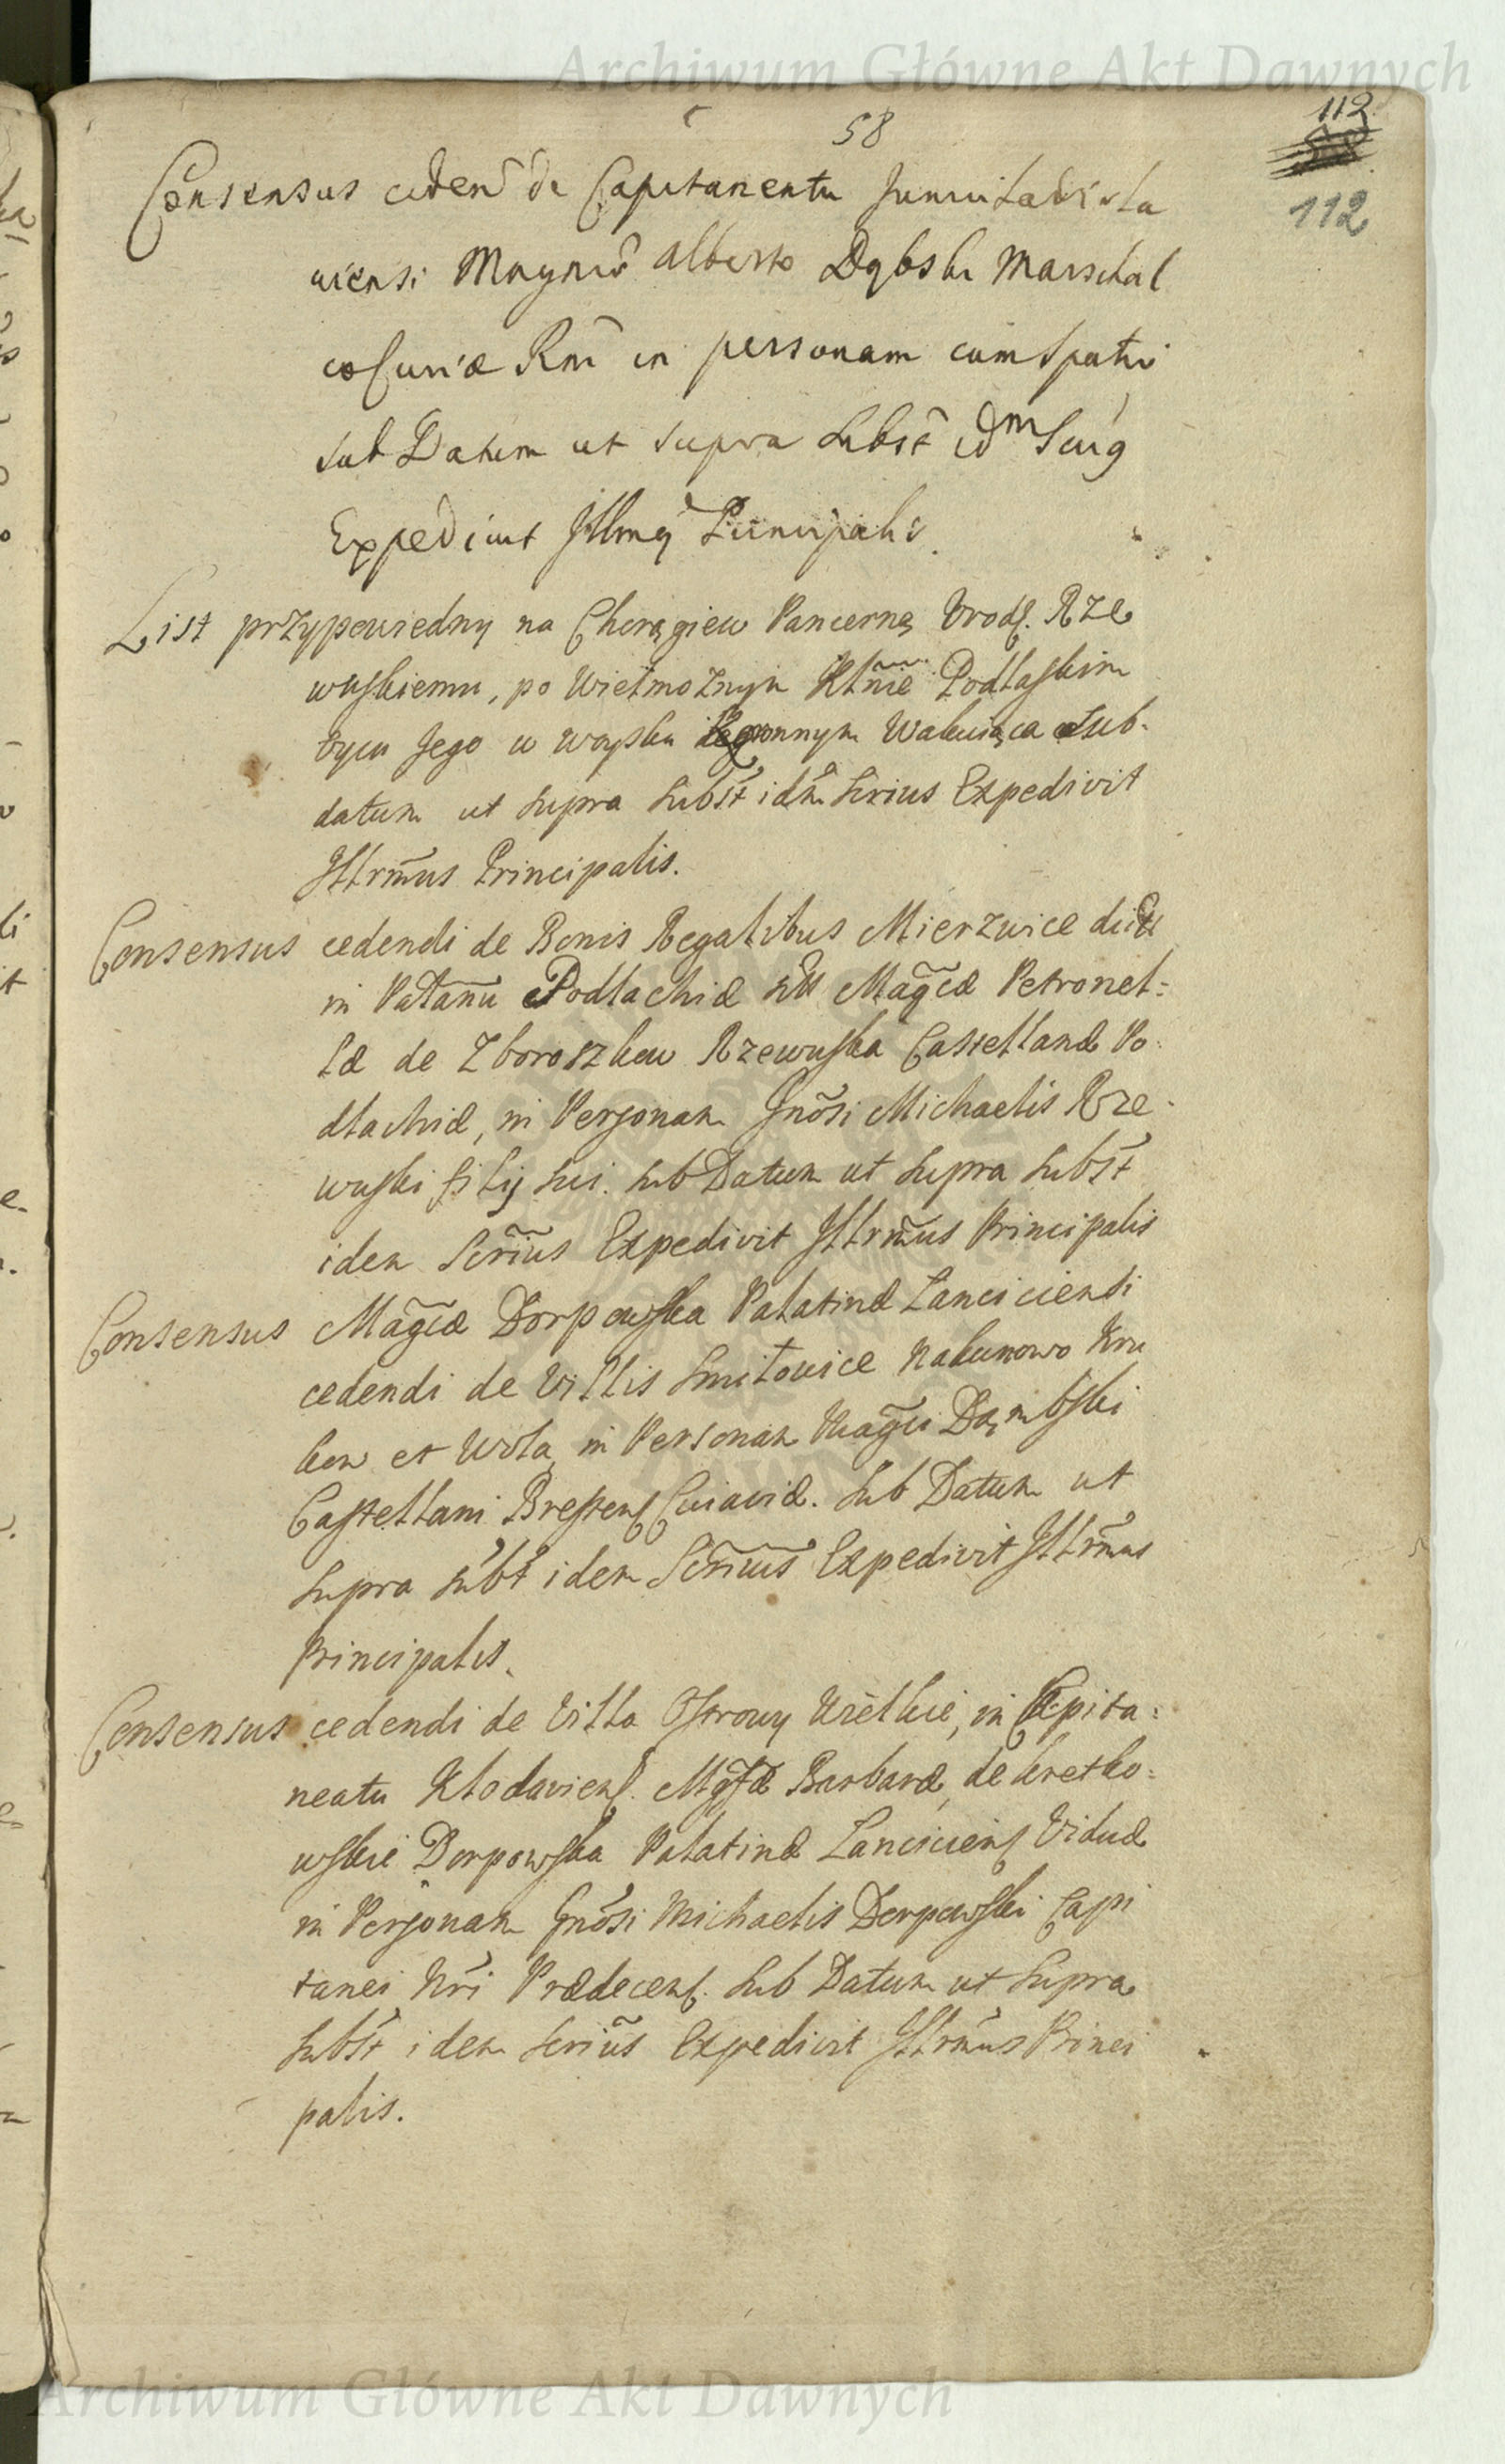 Archiwum Główne Akt Dawnych
58
112
112
Consensus cedend̃ de Capitaneatu Juniuladisla
viensi Magnco Alberto Dąbski Marschal
co Curiæ Rni in personam cum Spatio
sub Datum ut supra Subst̃ idm
Expedivit Illmg Principalis.
List przypowiedny na Chorągiew Pancerną Urodz. Rze
wuskiemu, po Wielmożnym Ktñie Podlaskim
Oycu Jego w woysku walcuiąca sub
datum ut supra Subst̃ idm Serius Expedivit
Illrm̃us Principalis.
Consensus cedendi de Bonis Regalibus Mierzwice dictis
in Palatañu Podlachiæ Mag̃cæ Petronel=
læ de Zboroszkow Rzewuska Castellanæ Po
dlachiæ, in Personam Gnõsi Michaelis Rze=
wuski filij sui. sub Datum ut supra subst̃
idem Serĩus Expedivit Illrm̃us Principalis
Consensus Mag̃cæ Dorpowska Palatinæ Lanciciensi
cedendi de Villis Smiłowice Nakunowo Kru
kow et Wola, in Personam Mag̃ci Dąmbski
Castellani Brestens Cuiaviæ. sub Datum ut
supra subst̃ idem Serĩus Expedivit Illrm̃us
Principalis.
Consensus cedendi de Villa Ostrowy Wielkie, in Capita=
neatu Klodaviens. Mg̃fæ Barbaræ, de kretko=
wskie Dorpowska Palatinæ Lanciciens Viduæ
in Personam Gnõsi Michaelis Dorpowski Capi
tanei Nri Prædecens. sub Datum ut supra
subst̃ idem Serĩus Expedivit Illrm̃us Princi
palis.
Archiwum Główne Akt Dawnych